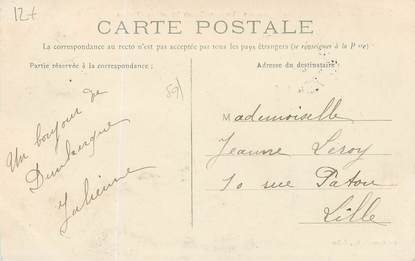 12+
CARTE POSTALE
La correspondance au recto n'est pas acceptée par tous les pays étrangers (se renseigner à la Poste)
Partie réservée à la correspondance :
Adresse du destinataire :
Un bonjour de
Dunkerque
Julienne
Mademoiselle
Jeanne Leroy
10 rue Patou
Lille